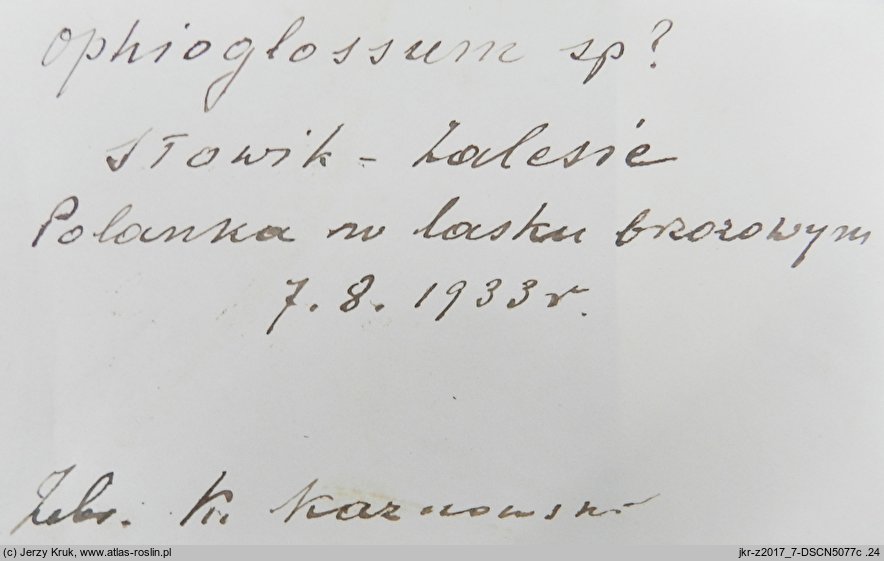 Ophioglossum sp?
Słowik - Zalesie
Polanka w lasku brzozowym
7. 8. 1933 r.
Zebr. K. Kaznowski
(c) Jerzy Kruk, www.atlas-roslin.pl
jkr-z2017_7-DSCN5077c .24